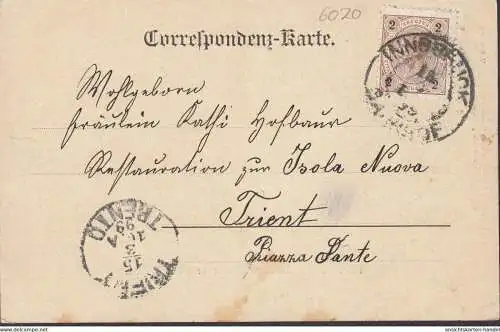 6020
Correspondenz-Karte.
2 2
INNSBRUCK
Wohlgeborn
Fräulein Kathi Hofbaur
Restauration zur Isola Nuova
Trient
Piazza Dante
TRIENT
15
3
TRENTO
ansichtskarten-handel.com